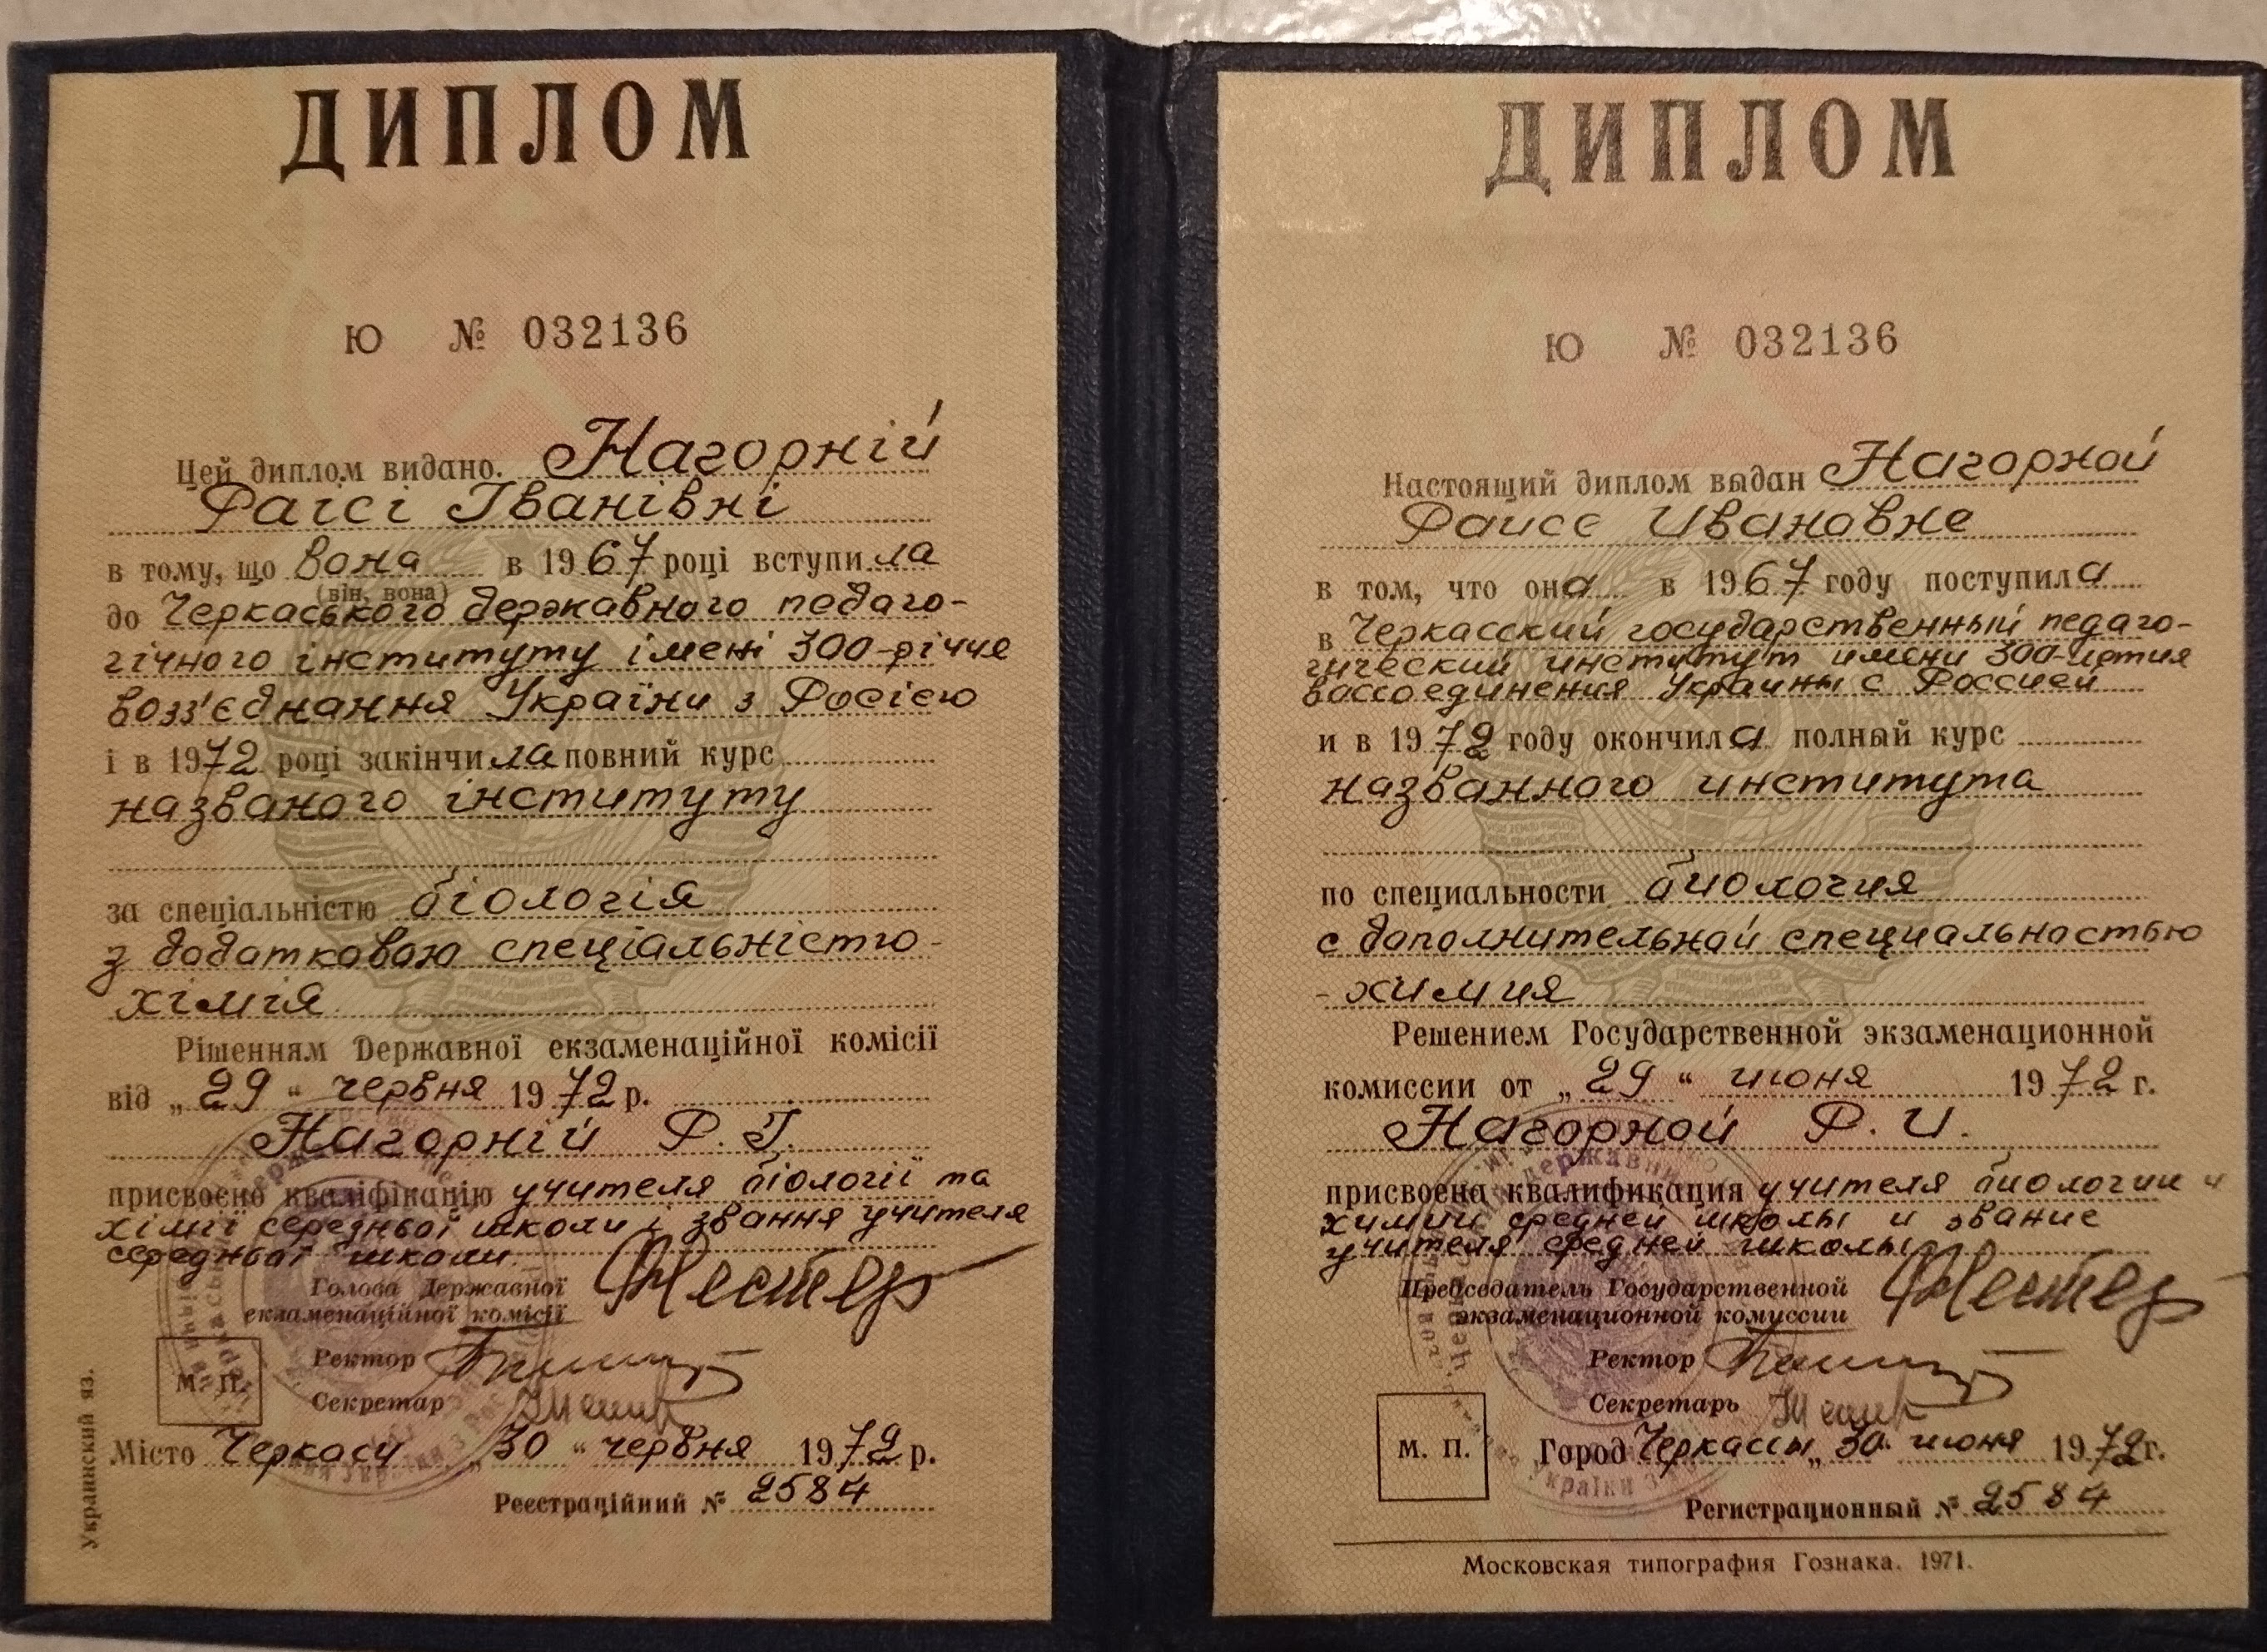 ДИПЛОМ
Ю № 032136
Цей диплом видано. Нагорній
Раїсі Іванівні
в тому, що вона в 1967 році вступила
(він, вона)
до Черкаського державного педаго-
гічного інституту імені 300-річчя
возз'єднання України з Росією
і в 1972 році закінчила повний курс
названого інституту
за спеціальністю біологія
з додатковою спеціальністю -
хімія
Рішенням Державної екзаменаційної комісії
від „29“ червня 1972 р.
Нагорній Р. І.
присвоєно кваліфікацію учителя біології та
хімії середньої школи і звання учителя
середньої школи.
Голова Державної
екзаменаційної комісії
Ректор
М. П.
Секретар
Місто Черкаси „30“ червня 1972 р.
Реєстраційний № 2584
Украинский яз.
ДИПЛОМ
Ю № 032136
Настоящий диплом выдан Нагорной
Раисе Ивановне
в том, что она в 1967 году поступила
в Черкасский государственный педаго-
гический институт имени 300-летия
воссоединения Украины с Россией
и в 1972 году окончила полный курс
названного института
по специальности биология
с дополнительной специальностью
- химия
Решением Государственной экзаменационной
комиссии от „29“ июня 1972 г.
Нагорной Р. И.
присвоена квалификация учителя биологии и
химии средней школы и звание
учителя средней школы
Председатель Государственной
экзаменационной комиссии
Ректор
Секретарь
М. П.
Город Черкассы „30. июня 1972 г.
Регистрационный № 2584
Московская типография Гознака. 1971.